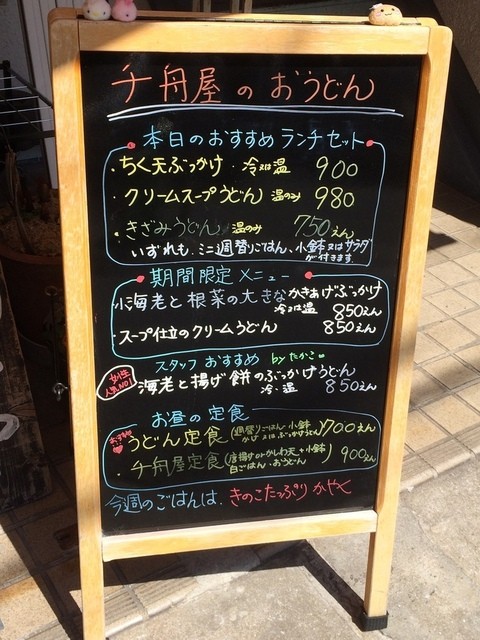 千舟屋のおうどん
本日のおすすめランチセット
・ちく天ぶっかけ・冷又は温 900
・クリームスープうどん 温のみ 980
・きざみうどん 温のみ 750えん
いずれも、ミニ週替りごはん、小鉢又はサラダ
が付きます
期間限定メニュー
小海老と根菜の大きなかきあげぶっかけ
冷又は温 850えん
・スープ仕立のクリームうどん 850えん
スタッフおすすめ byたかこ
女性
人気NO1
海老と揚げ餅のぶっかけうどん
冷・温 850えん
お昼の定食
おすすめ
うどん定食(週替りごはん・小鉢 700えん
かけ又はぶっかけうどん)
・千舟屋定食(唐揚orかしわ天+小鉢 900えん
白ごはん・おうどん)
今週のごはんは、きのこたっぷりかやく